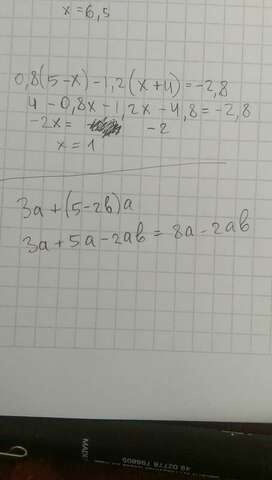 x=6,5
0,8(5-x)-1,2(x+4)=-2,8
4-0,8x-1,2x-4,8=-2,8
-2x= -2
x=1
3a+(5-2b)a
3a+5a-2ab=8a-2ab